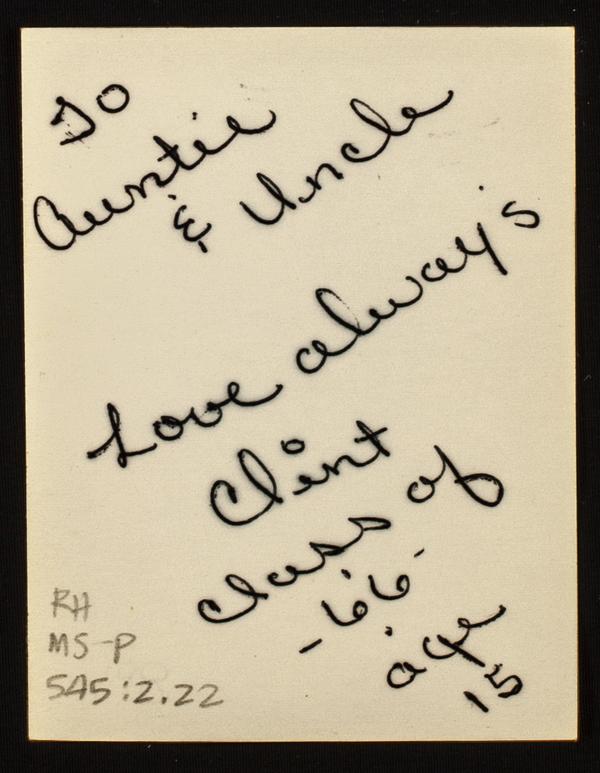 To
Auntie
& Uncle
Love alway's
Clint
class of
-66-
age
15
RH
MS-P
545:2.22